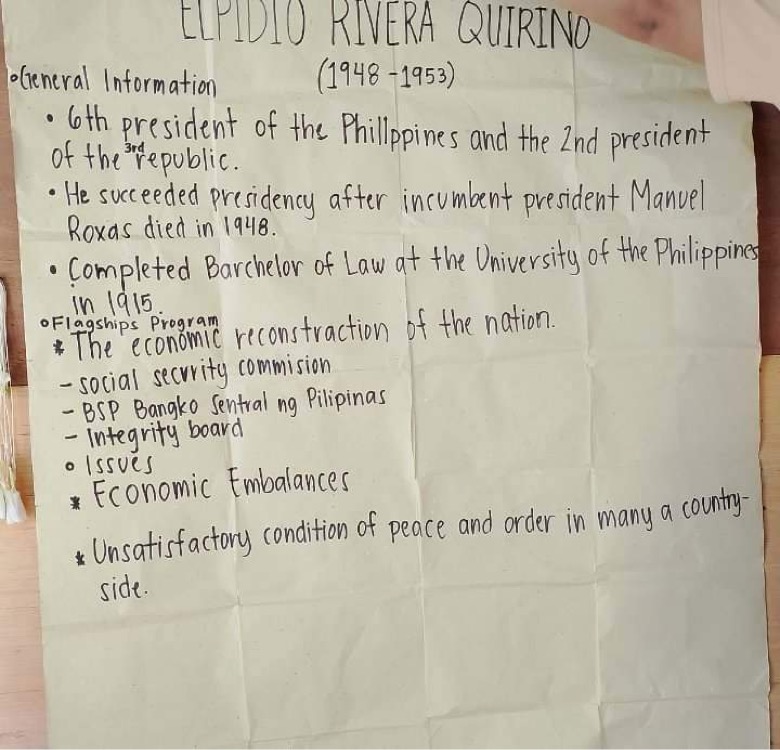 ELPIDIO RIVERA QUIRINO
(1948-1953)
∘General Information
• 6th president of the Phillppines and the 2nd president
of the 3rd republic.
• He succeeded presidency after incumbent president Manuel
Roxas died in 1948.
• Completed Barchelor of Law at the University of the Philippines
in 1915.
∘Flagships Program
* The economic reconstraction of the nation.
- social security commision
- BSP Bangko Sentral ng Pilipinas
- Integrity board
∘ Issues
* Economic Embalances
* Unsatisfactory condition of peace and order in many a country-
side.